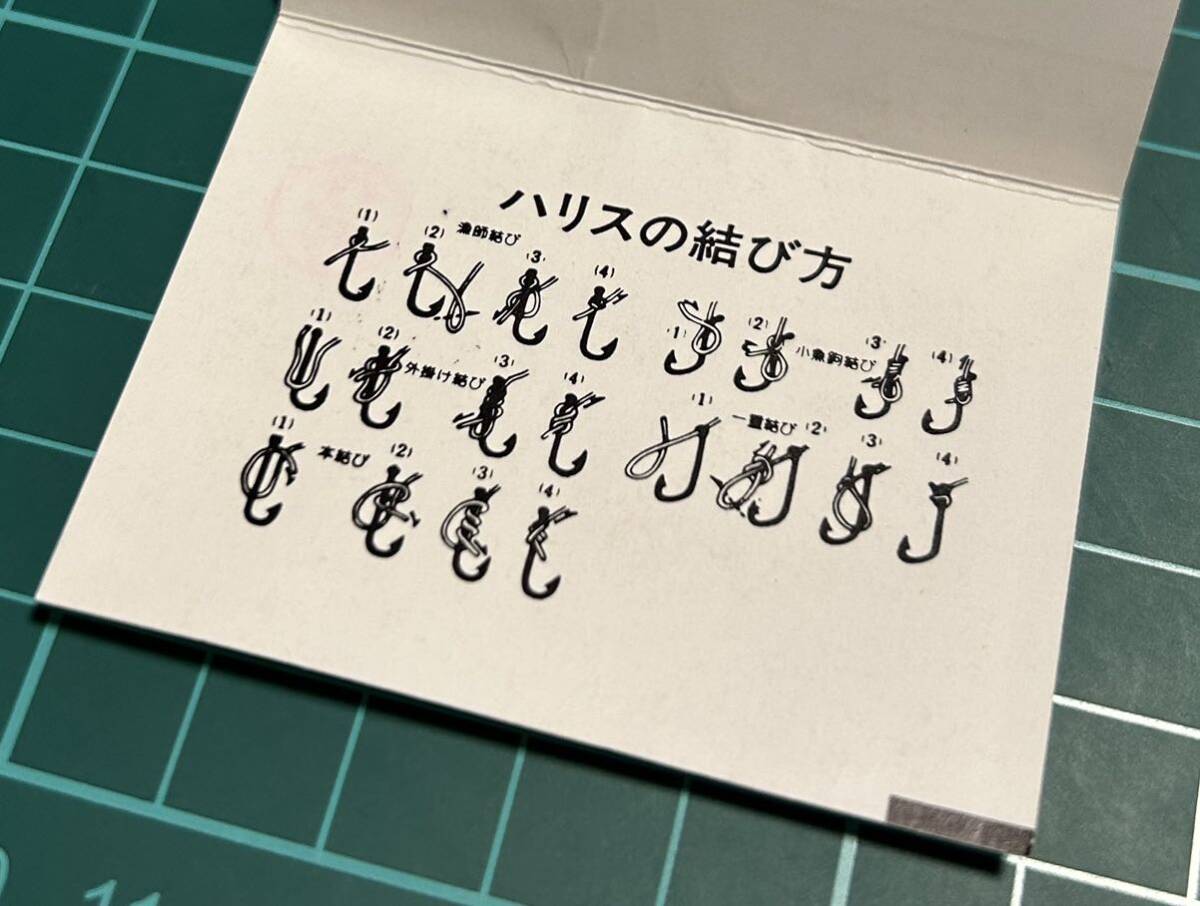 ハリスの結び方
(1) (2) 漁師結び (3) (4)
(1) (2) 外掛け結び (3) (4)
(1) 本結び (2) (3) (4)
(1) (2) 小魚鈎結び (3) (4)
(1) 一重結び (2) (3) (4)
11